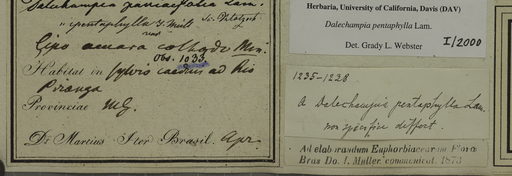 Dalechampia Lam.
"pentaphylla
Cipo amara colhgdo Min.
Obs. 1033.
Habitat in sylvis caeduis ad Rio
Piranga
Provinciae MG.
Dr Martius Iter Brasil. Apr.
Herbaria, University of California, Davis (DAV)
Dalechampia pentaphylla Lam.
Det. Grady L. Webster
I/2000
1235-1228
A Dalechampia pentaphylla Lam.
non specifice differt.
Ad elaborandum Euphorbiacearum Florae
Bras Do. J. Muller communicat. 1873